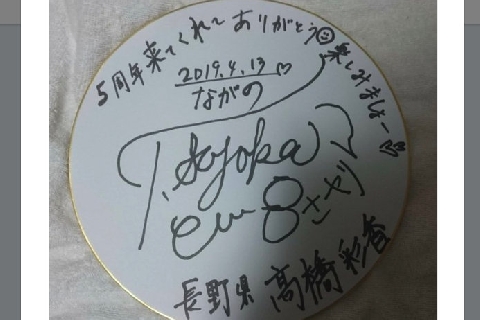 5周年来てくれてありがとう☺楽しみましょー♡♡
2019.4.13♡
ながの
T.Ayaka
長野県 高橋彩香